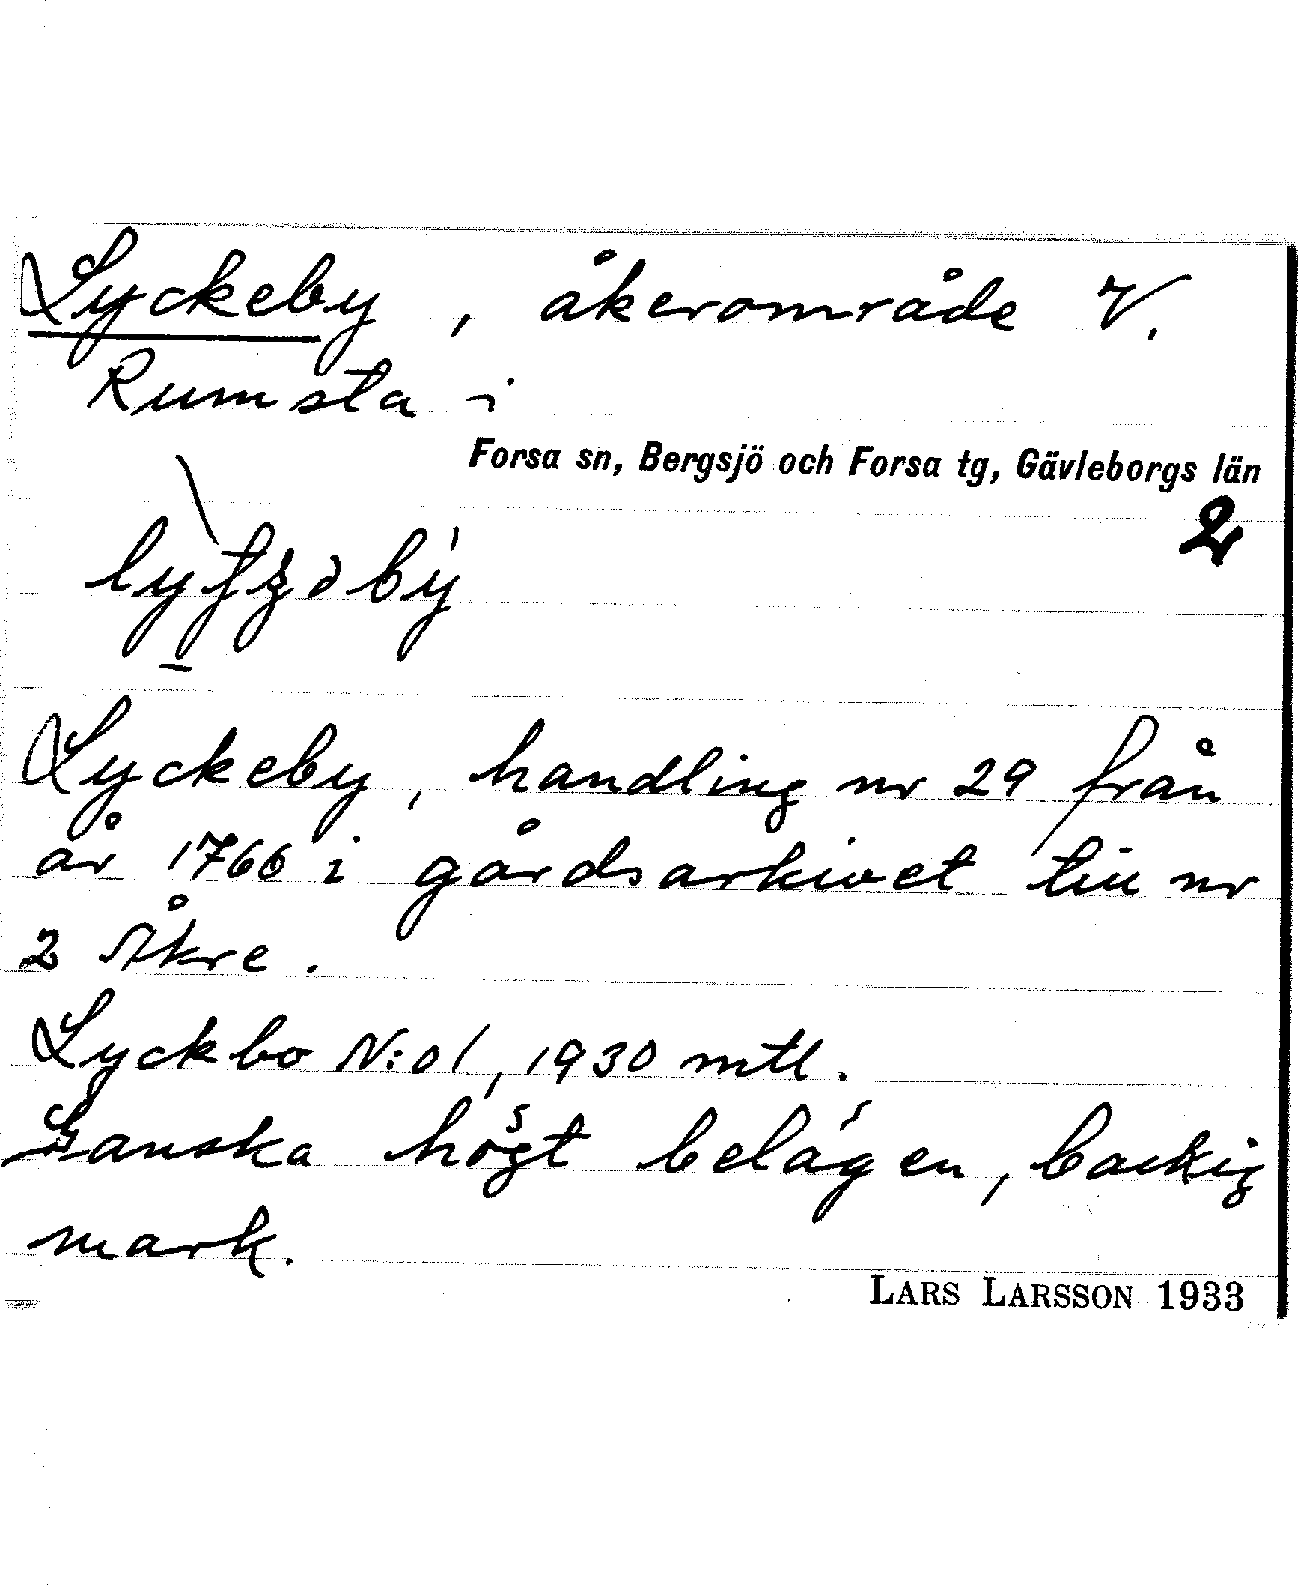 Lyckeby, åkerområde V.
Rumsta i
Forsa sn, Bergsjö och Forsa tg, Gävleborgs län
2
Lyckeby, handling nr 29 från
år 1766 i gårdsarkivet till nr
2 Åkre.
Lyckbo N:o 1, 1930 mtl.
Ganska högt belägen, backig
mark.
LARS LARSSON 1933